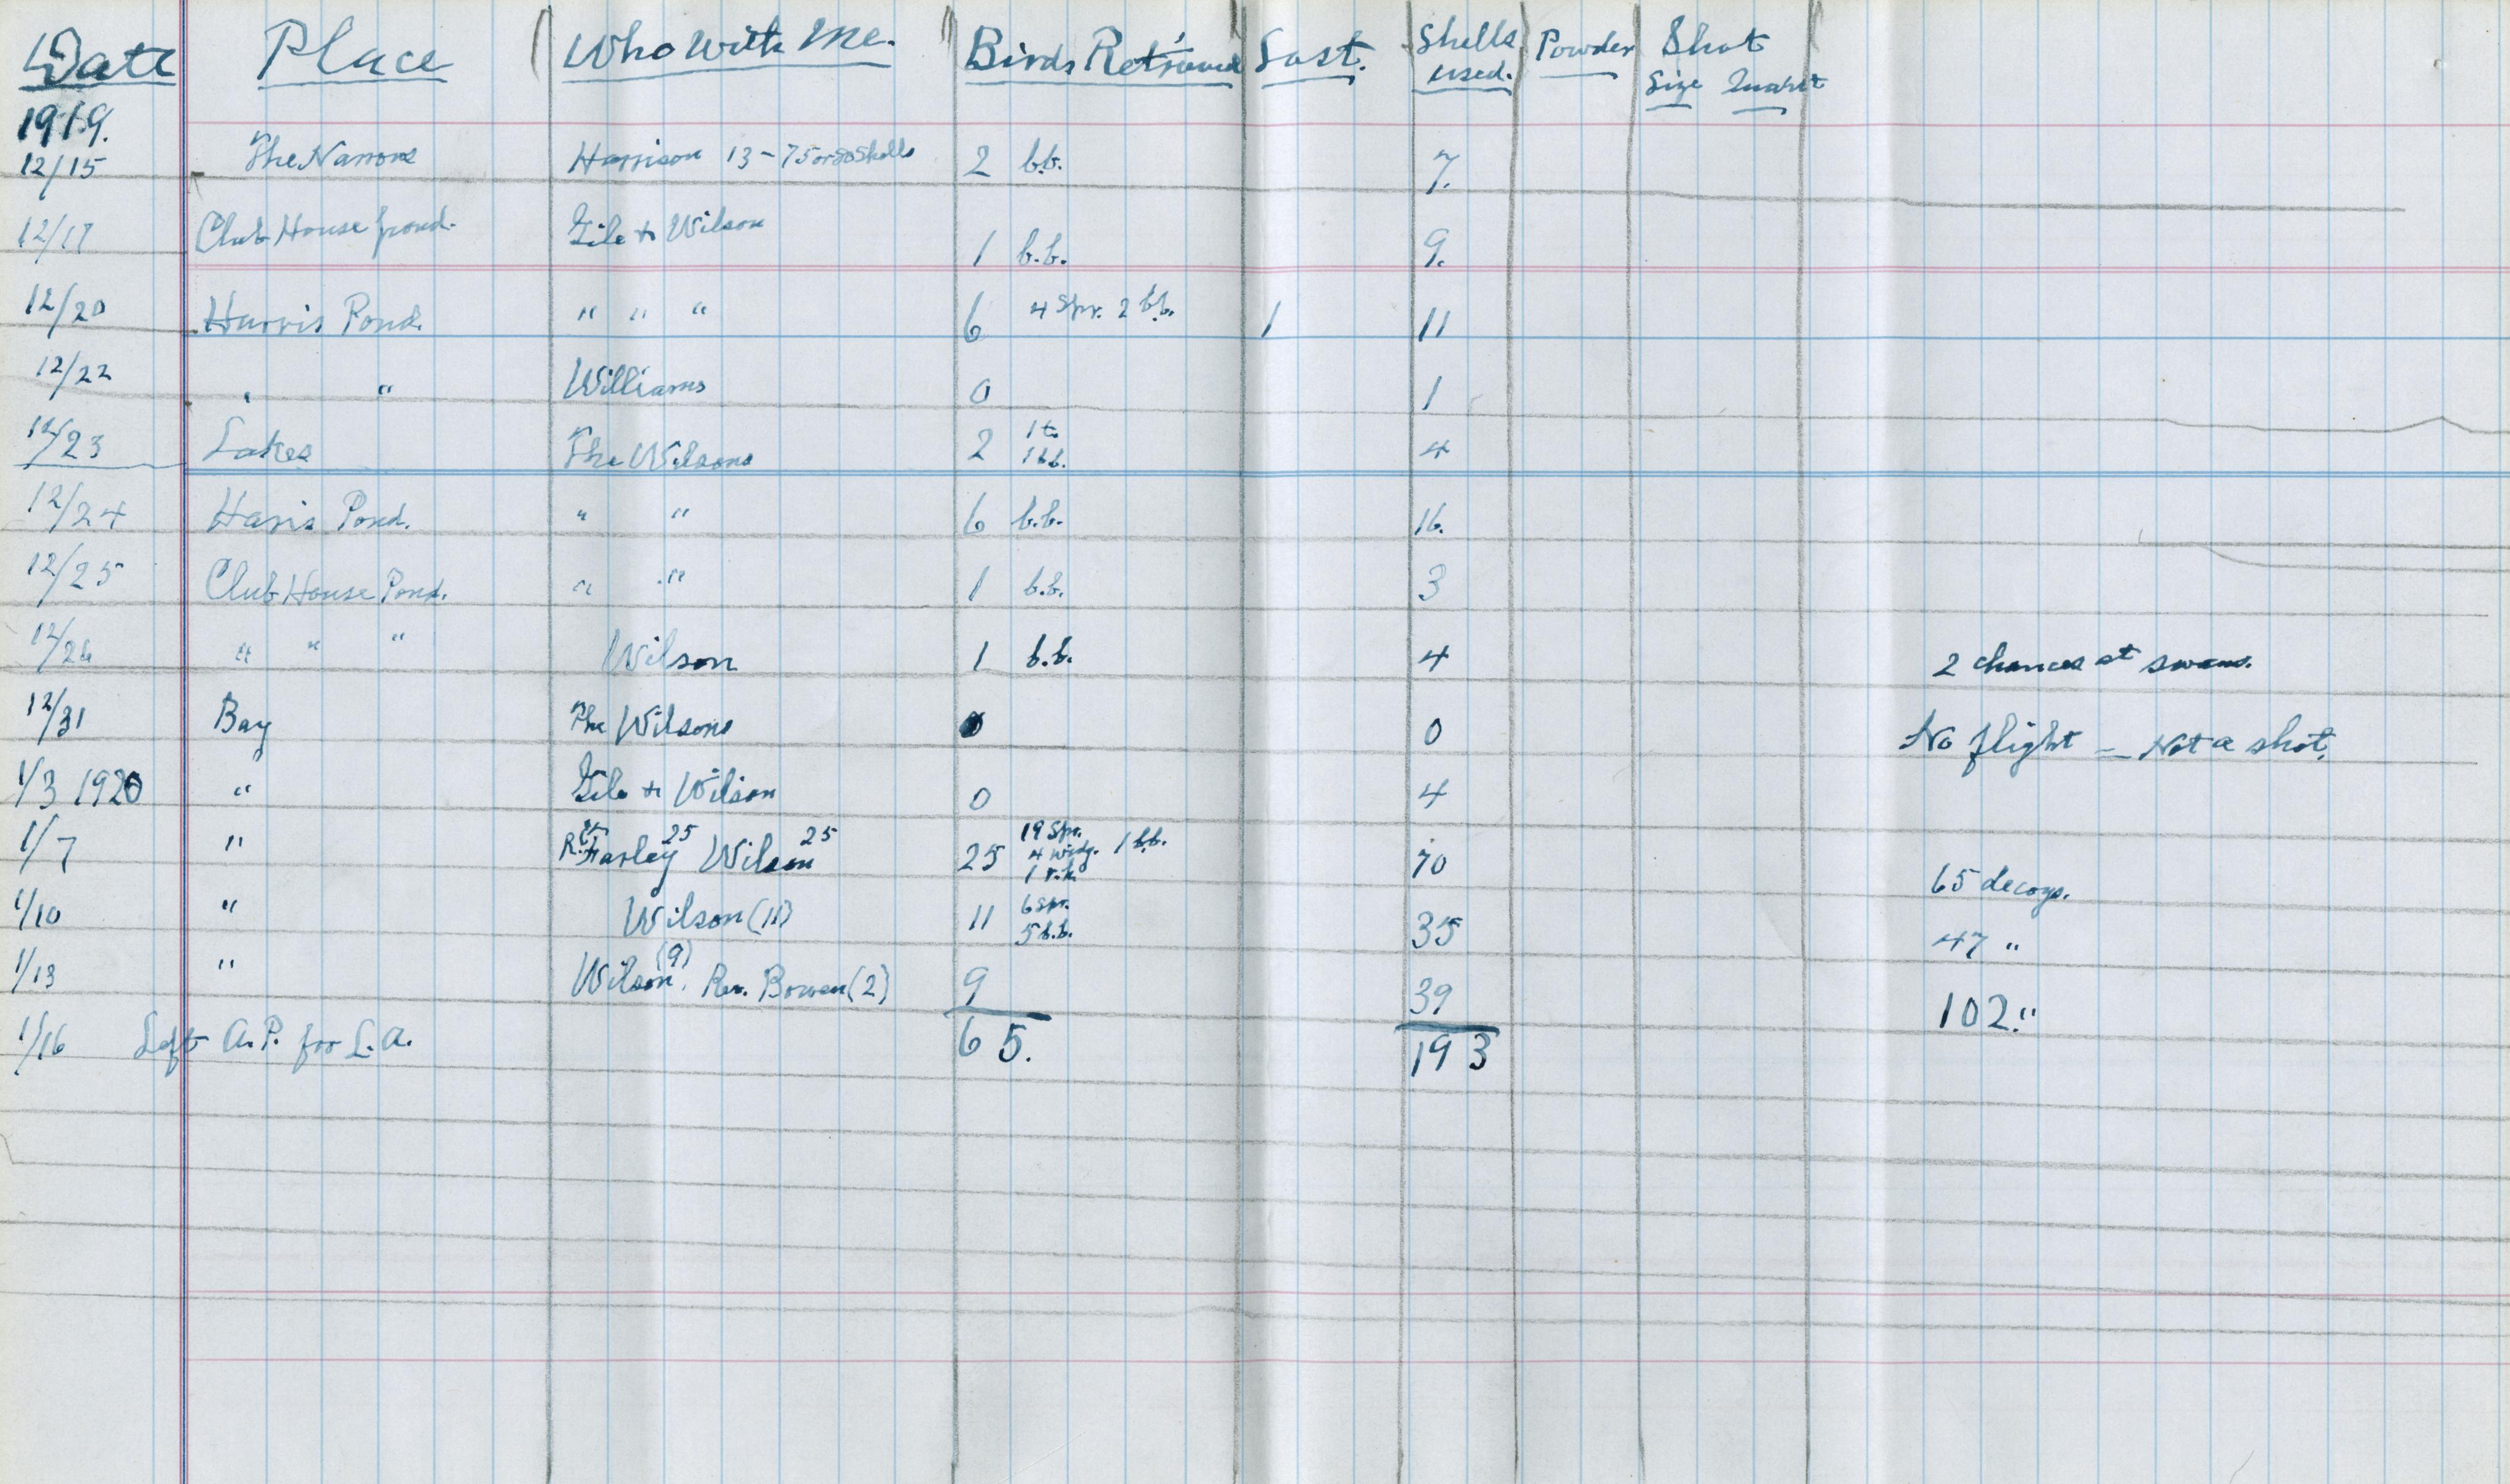 Date Place Who with Me. Birds Retrieved Lost. Shells used. Powder Shot Size Quan't
1919.
12/15 The Narrows Harrison 13 - 75 or 80 shells 2 b.b. 7.
12/17 Club House pond. Gile & Wilson 1 b.b. 9.
12/20 Harris Pond. " " " 6 4 Spr. 2 b.b. 1 11
12/22 " " Williams 0 1
12/23 Lakes The Wilsons 2 1 t. 1 b.b. 4
12/24 Haris Pond. " " 6 b.b. 16.
12/25 Club House Pond. " " 1 b.b. 3
12/26 " " " Wilson 1 b.b. 4 2 chances at swans.
12/31 Bay The Wilsons 0 0 No flight - Not a shot.
1/3 1920 " Gile & Wilson 0 4
1/7 " Farley 25 Wilson 25 25 19 Spr. 4 widg. 1 b.b. 1 r.h. 70 65 decoys.
1/10 " Wilson (11) 11 6 spr. 5 b.b. 35 47 "
1/13 " Wilson (9), Rev. Bowen (2) 9 39 102 "
1/16 Left A.P. for L.A. 65. 193